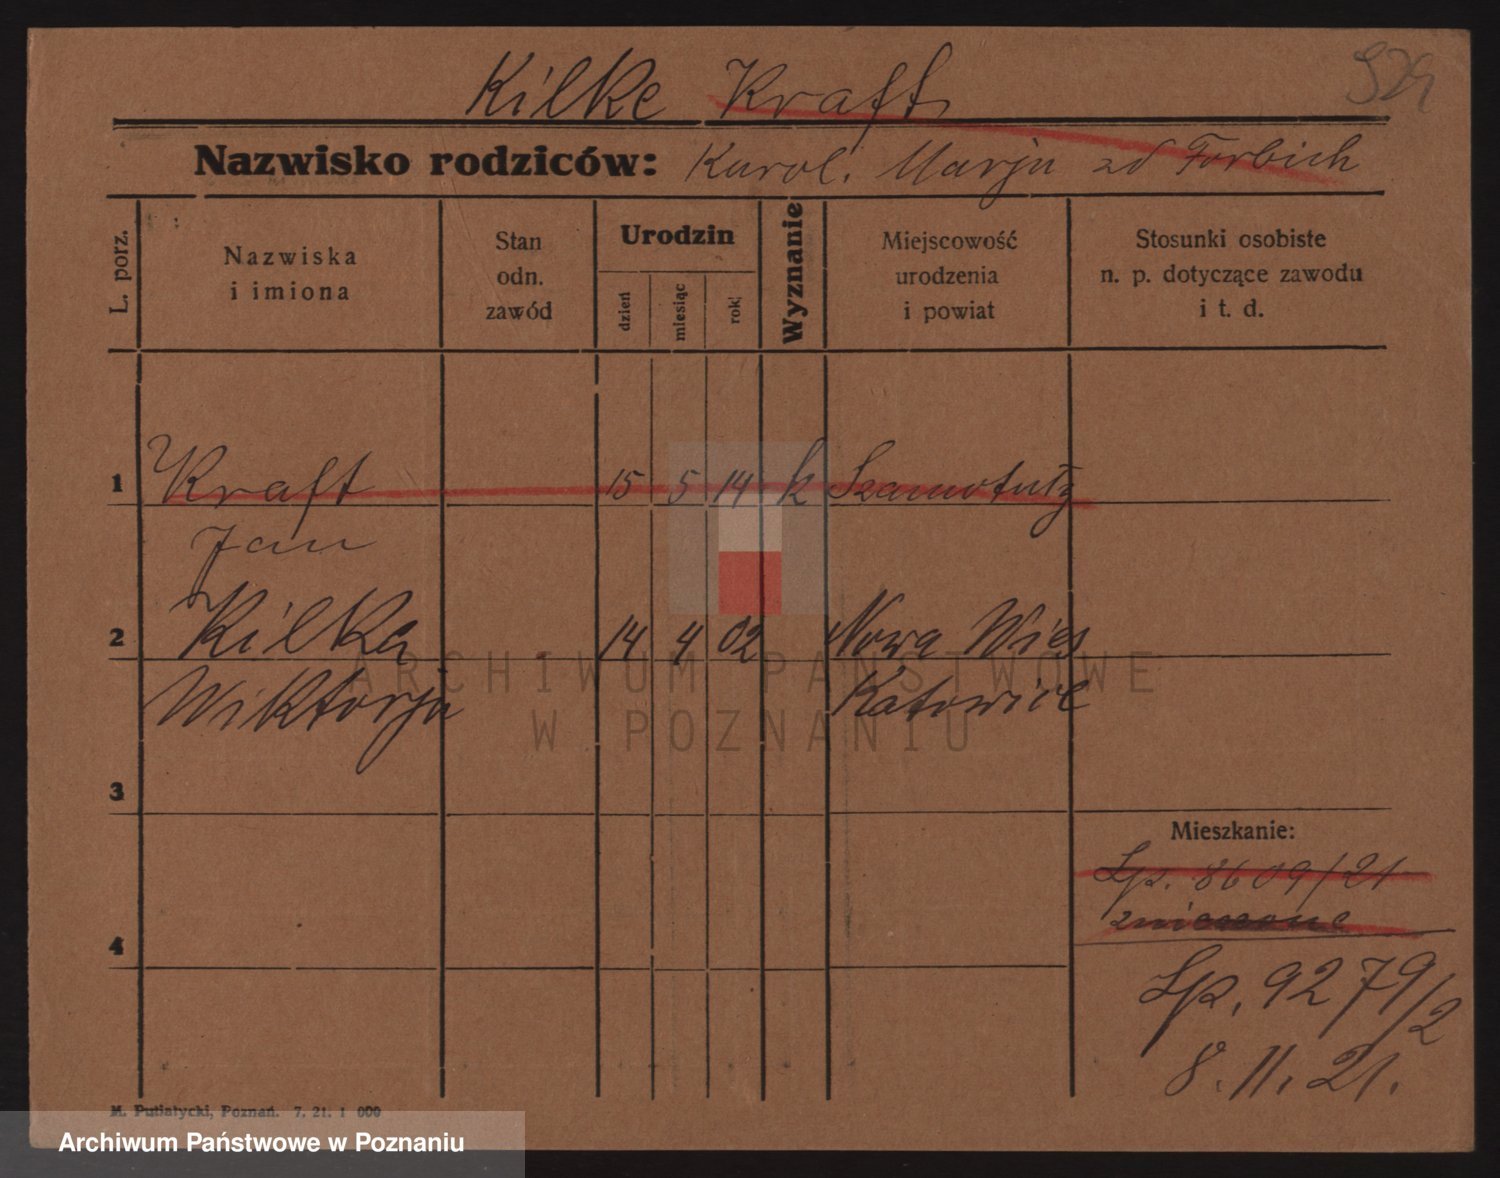 Kilke Kraft
Nazwisko rodziców: Karol. Marja zd Forbich
L. porz.
Nazwiska
i imiona
Stan
odn.
zawód
Urodzin
dzień
miesiąc
rok
Wyznanie
Miejscowość
urodzenia
i powiat
Stosunki osobiste
n. p. dotyczące zawodu
i t. d.
1 Kraft 15 5 14 k Szamotuły
Jan
2 Kilka 14 4 02 Nowa Wies
Wiktorja Katowice
ARCHIWUM PAŃSTWOWE
W POZNANIU
3
Mieszkanie:
Lp. 8609/21
4
Lp. 9279/2
8.11.21.
M. Putiatycki, Poznań. 7. 21. 1 000
Archiwum Państwowe w Poznaniu